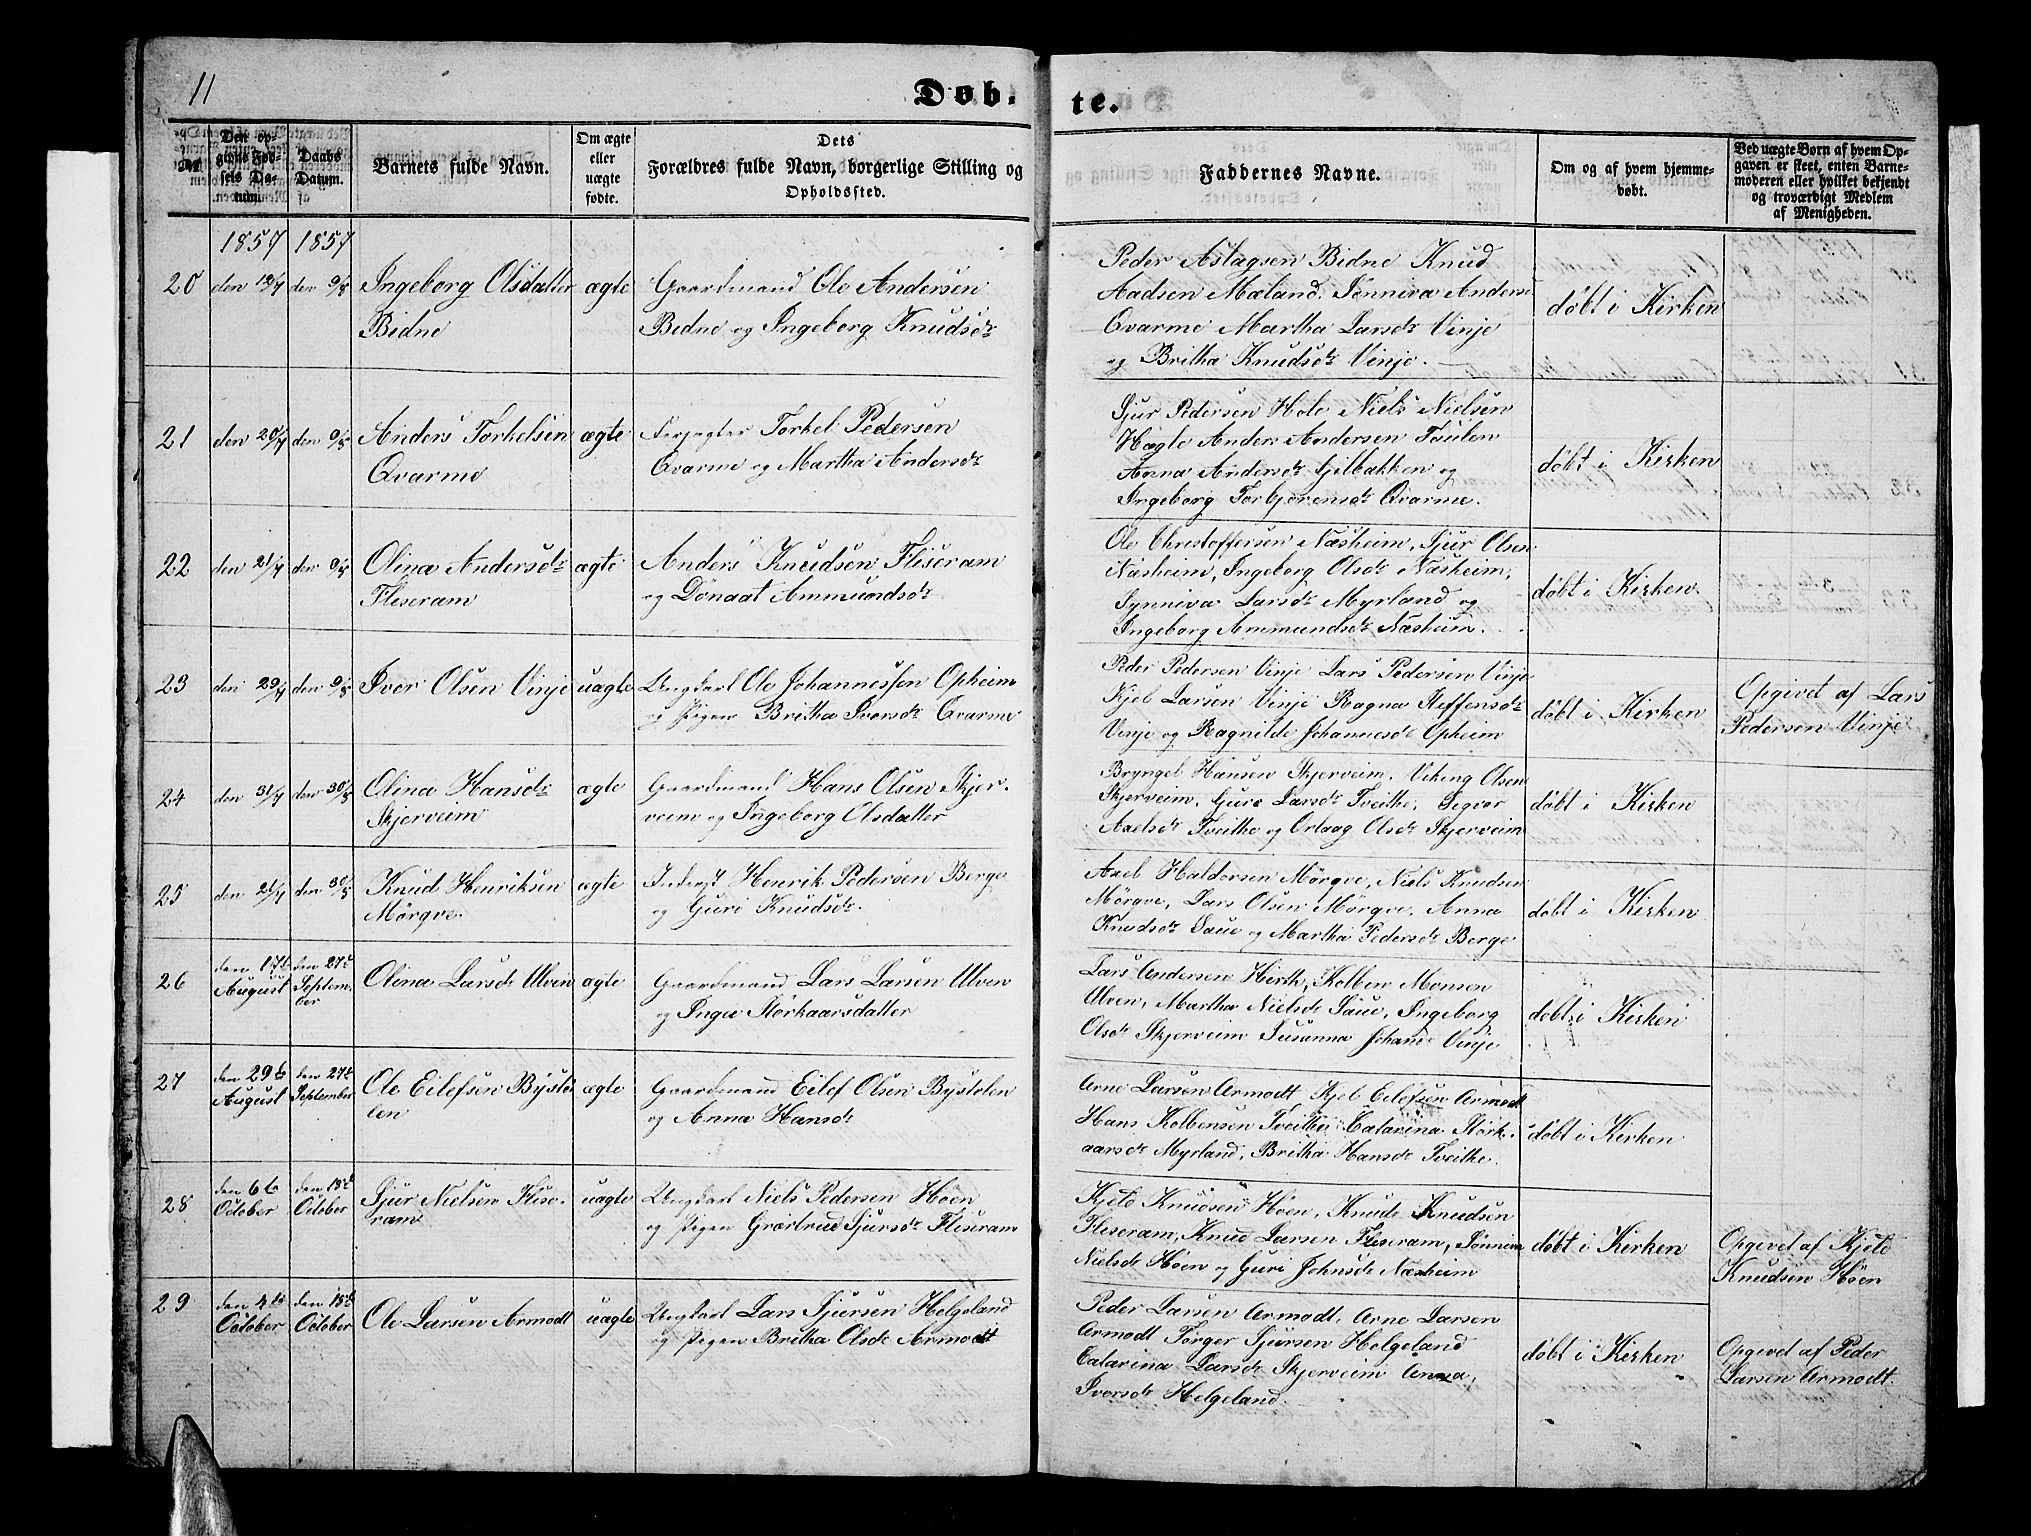 11
Døb- te.
№
Den op-
givne Fød-
sels Da-
tum.
Daabs
Datum.
Barnets fulde Navn.
Om ægte
eller
uægte
fødte.
Dets
Forældres fulde Navn, borgerlige Stilling og
Opholdssted.
Faddernes Navne.
Om og af hvem hjemme-
døbt.
Ved uægte Børn af hvem Op-
gaven er skeet, enten Barne-
moderen eller hvilket bekjendt
og troværdigt Medlem
af Menigheden.
1857 1857
20 den 13/7 den 9/8 Ingeborg Olsdatter ægte Gaardmand Ole Andersen
Bidne Bidne og Ingeborg Knudsdr
Peder Aslagsen Bidne Knud
Aadsen Mæland, Sønneva Anders
Qvarme Martha Larsdr Vinje
og Britha Knudsdr Vinje.
døbt i Kirken
21 den 20/7 den 9/8 Anders Torkelsen ægte Torkel Pedersen
Qvarme Qvarme og Martha Andersdr
Sjur Pedersen Hole Niels Nielsen
Hægle Anders Andersen
Anna Andersdr Gilbakken og
Ingeborg Torbjørensdr Qvarme.
døbt i Kirken
22 den 21/7 den 9/8 Olina Andersdr ægte Anders Knudsen Fliseram
Fliseram og Dønaat Ammundsdr
Ole Christoffersen Næsheim, Sjur Olsen
Næsheim, Ingeborg Olsdr Næsheim,
Synniva Larsdr Myrland og
Ingeborg Ammundsdr Næsheim.
døbt i Kirken.
23 den 29/7 den 9/8 Iver Olsen Vinje uægte Ungkarl Ole Johannessen Opheim
og Pigen Britha Iversdr Qvarme
Peder Pedersen Vinje Lars Pedersen Vinje
Kjel Larsen Vinje Ragna Steffensdr
Vinje og Ragnilde Johannesdr Opheim
døbt i Kirken
Opgivet af Lars
Pedersen Vinje
24 den 31/7 den 30/8 Olina Hansdr ægte Gaardmand Hans Olsen Skjer-
Skjerveim veim og Ingeborg Olsdatter
Bryngel Hansen Skjerveim, Viking Olsen
Skjerveim, Guro Larsdr Tveithe, Segvor
Axelsdr Tveithe og Orlaag Olsdr Skjerveim
døbt i Kirken
25 den 21/7 den 30/8 Knud Henriksen ægte Inderst Henrik Pedersen Berge
Mørqve. og Guri Knudsdr.
Axel Haldorsen Mørqve, Niels Knudsen
Mørqve, Lars Olsen Mørqve, Anna
Knudsdr Saue og Martha Pedersdr Berge
døbt i Kirken
26 den 17de den 27de Olina Larsdr Ulven ægte Gaardmand Lars Larsen Ulven
August Septem-
ber og Inga Størkaarsdatter
Lars Andersen Hirth, Kolben Monsen
Ulven, Martha Nielsdr Saue, Ingeborg
Olsdr Skjerveim Susanna Johansdr Vinje
døbt i Kirken
27 den 29de den 27de Ole Eilefsen Bystø- ægte Gaardmand Eilef Olsen Bystølen
August September len og Anna Hansdr
Arne Larsen Armodt Kjel Eilefsen Armodt
Hans Kolbensen Tveithe, Catarina Størk-
aarsdr Myrland, Britha Hansdr Tveithe.
døbt i Kirken
28 den 6te den 18de Sjur Nielsen Flise- uægte Ungkarl Niels Pedersen Høen
October October ram og Pigen Giærtrud Sjursdr Fliseram
Kjeld Knudsen Høen, Knud Knudsen
Fliseram, Knud Larsen Fliseram, Sønneva
Nielsdr Høen og Guri Johnsdr Næsheim
døbt i Kirken
Opgivet af Kjeld
Knudsen Høen
29 den 4de den 18de Ole Larsen Armodt uægte Ungkarl Lars Sjursen Helgeland
October October og Pigen Britha Olsdr Armodt
Peder Larsen Armodt, Arne Larsen
Armodt Torger Sjursen Helgeland
Catarina Larsdr Skjerveim Anna,
Iversdr Helgeland.
døbt i Kirken
Opgivet af Peder
Larsen Armodt.